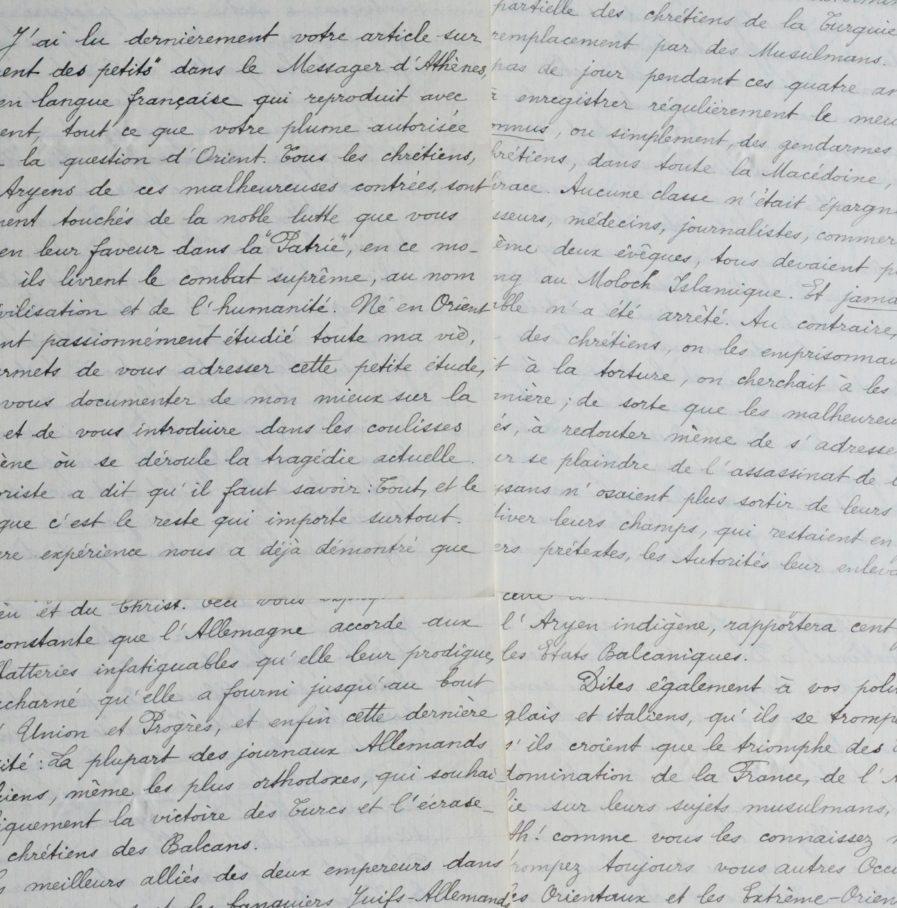 J'ai lu dernierement votre article sur
ent des petits" dans le Messager d'Athènes,
en langue française qui reproduit avec
ent, tout ce que votre plume autorisée
la question d'Orient. Tous les chrétiens,
Aryens de ces malheureuses contrées, sont
ment touchés de la noble lutte que vous
en leur faveur dans la "Patrie", en ce mo-
ils livrent le combat suprême, au nom
vilisation et de l'humanité. Né en Orient
nt passionnément étudié toute ma vie,
rmets de vous adresser cette petite étude,
vous documenter de mon mieux sur la
et de vous introduire dans les coulisses
ène où se déroule la tragédie actuelle.
oriste a dit qu'il faut savoir: Tout, et le
que c'est le reste qui importe surtout.
re expérience nous a déjà démontré que
partielle des chrétiens de la Turquie
remplacement par des Musulmans.
pas de jour pendant ces quatre an
à enregistrer régulièrement le meu
onnus, ou simplement, des gendarmes
hrétiens, dans toute la Macédoine,
hrace. Aucune classe n'était épargn
sseurs, médecins, journalistes, commer
ême deux évêques, tous devaient p
ng au Moloch Islamique. Et jama
ble n'a été arrêté. Au contraire,
des chrétiens, on les emprisonnai
t à la torture, on cherchait à les
nière; de sorte que les malheureu
és, à redouter même de s'adresse
ur se plaindre de l'assassinat de l
ysans n'osaient plus sortir de leurs
tiver leurs champs, qui restaient en
ers prétextes, les Autorités leur enleva
et du Christ. Ceci vous
constante que l'Allemagne accorde aux
flatteries infatiguables qu'elle leur prodigue,
charné qu'elle a fourni jusqu'au bout
Union et Progrès, et enfin cette dernière
ité: La plupart des journaux Allemands
hiens, même les plus orthodoxes, qui souhai
iquement la victoire des Turcs et l'écrase-
chrétiens des Balcans.
s meilleurs alliés des deux empereurs dans
les banquiers Juifs-Allemands
l'Aryen indigène, rapportera cent
les États Balcaniques.
Dites également à vos polit
glais et italiens, qu'ils se trompe
s'ils croient que le triomphe des
domination de la France, de l'A
ie sur leurs sujets musulmans,
Ah! comme vous les connaissez m
trompez toujours vous autres Occi
les Orientaux et les Extrême-Orien